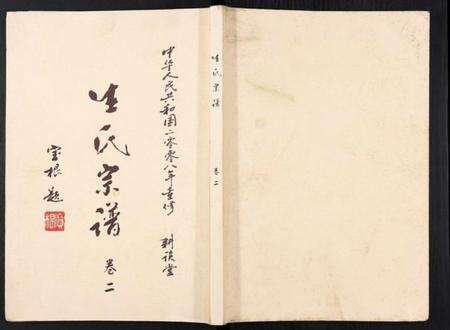 中华人民共和国二零零八年重修 耕读堂
生氏宗谱 卷二
宝根题
生氏宗谱 卷二